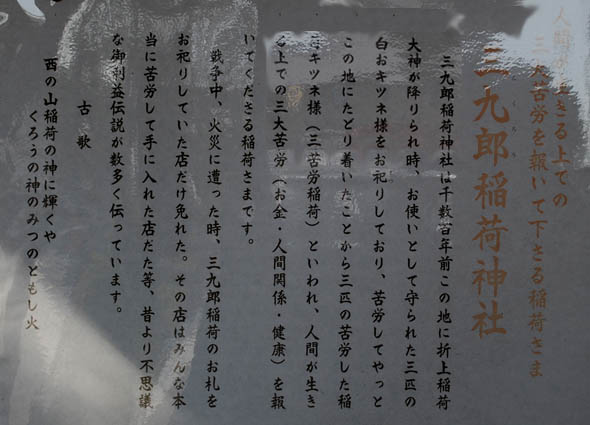 人間が生きる上での
三大苦労を報いて下さる稲荷さま
三九郎稲荷神社
くろう
三九郎稲荷神社は千数百年前この地に折上稲荷
大神が降りられ時、お使いとして守られた三匹の
白おキツネ様をお祀りしており、苦労してやっと
この地にたどり着いたことから三匹の苦労した稲
荷キツネ様(三苦労稲荷)といわれ、人間が生き
る上での三大苦労(お金・人間関係・健康)を報
いてくださる稲荷さまです。
戦争中、火災に遭った時、三九郎稲荷のお札を
お祀りしていた店だけ免れた。その店はみんな本
当に苦労して手に入れた店だた等、昔より不思議
な御利益伝説が数多く伝っています。
古歌
西の山稲荷の神に輝くや
くろうの神のみつのともし火